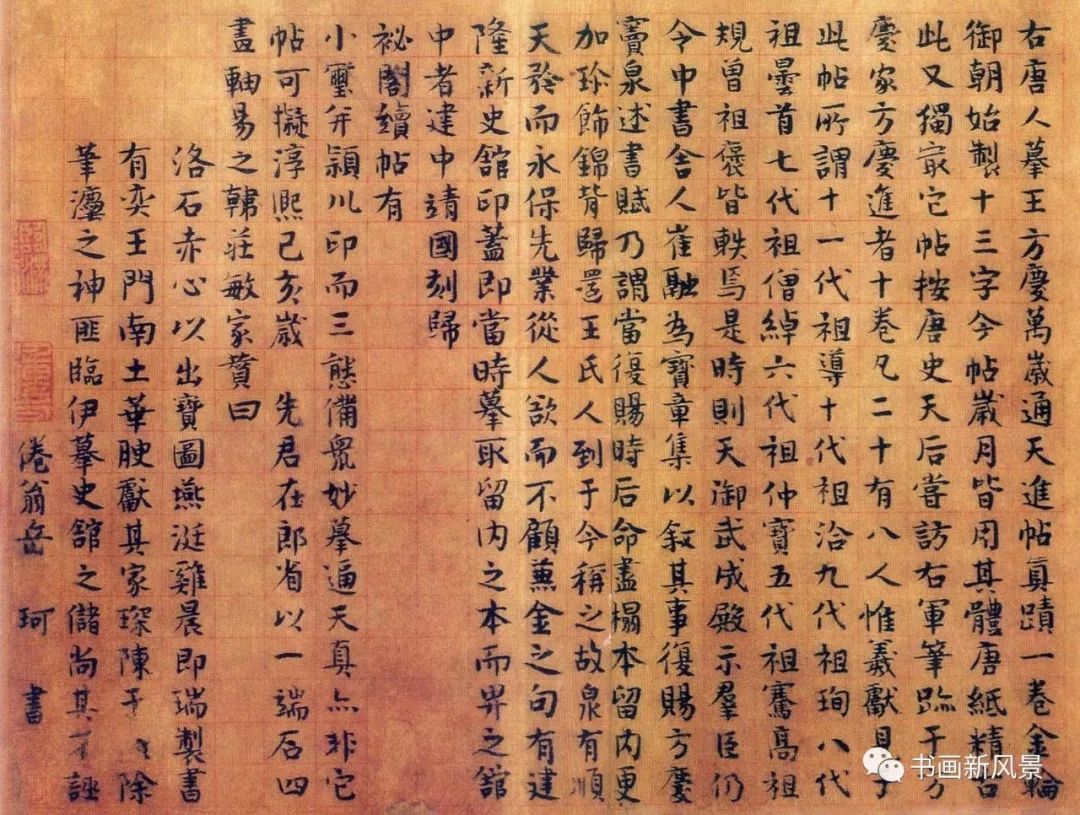 右唐人摹王方慶萬歲通天進帖真蹟一卷金輪
御朝始製十三字今帖歲月皆用其體唐紙精古
此又獨最它帖按唐史天后嘗訪右軍筆跡于方
慶家方慶進者十卷凡二十有八人惟羲獻見于
此帖所謂十一代祖導十代祖洽九代祖珣八代
祖曇首七代祖僧綽六代祖仲寶五代祖騫高祖
規曾祖褒皆軼焉是時則天御武成殿示羣臣仍
令中書舍人崔融為寶章集以敘其事復賜方慶
竇泉述書賦乃謂當復賜時后命盡榻本留內更
加珍飾錦背歸還王氏人到于今稱之故泉有順
天矜而永保先業從人欲而不顧兼金之句有建
隆新史館印蓋即當時摹取留內之本而畀之館
中者建中靖國刻歸
祕閣續帖有
小璽并潁川印而三態備眾妙摹逼天真亦非它
帖可擬淳熙己亥歲 先君在郎省以一端石四
畫軸易之韓莊敏家贊曰
洛石赤心以出寶圖燕涎雞晨即瑞製書
有奕王門南土華腴獻其家琛陳于 除
筆瀍之神匪臨伊摹史館之儲尚其不誣
倦翁岳珂書
书画新风景